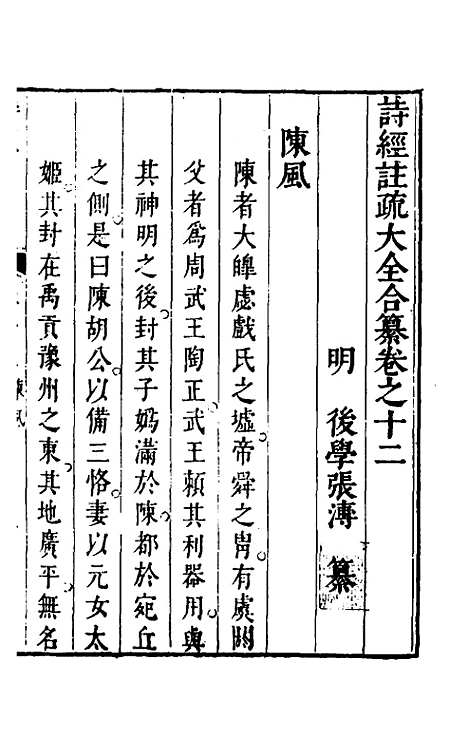 詩經註疏大全合纂卷之十二
明 後學張溥 纂
陳風
陳者大皡虙戲氏之墟帝舜之胄有虞閼
父者爲周武王陶正武王賴其利器用與
其神明之後封其子嬀滿於陳都於宛丘
之側是曰陳胡公以備三恪妻以元女太
姬其封在禹貢豫州之東其地廣平無名